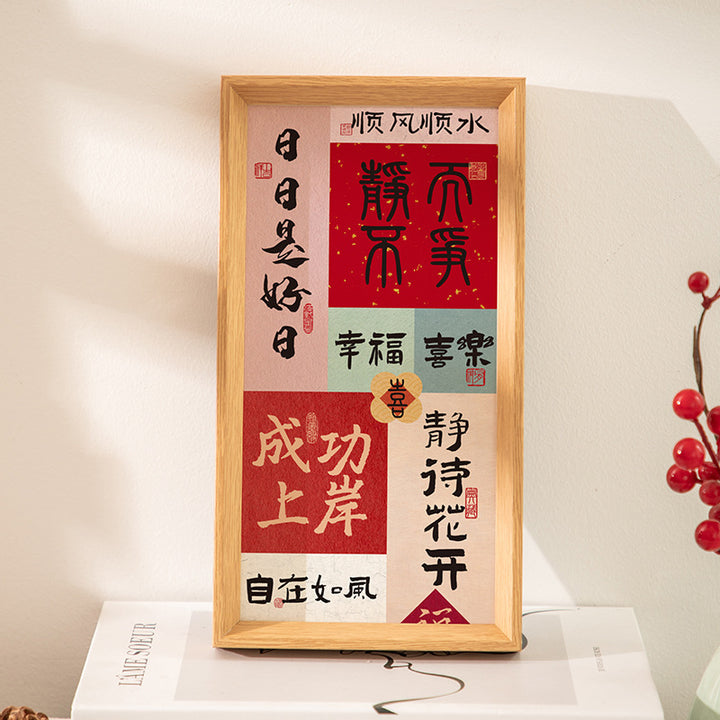 顺风顺水
日日是好日
靜而
不爭
幸福
喜樂
喜
成功
上岸
静待花开
自在如風
祥
L'ÂME SOEUR